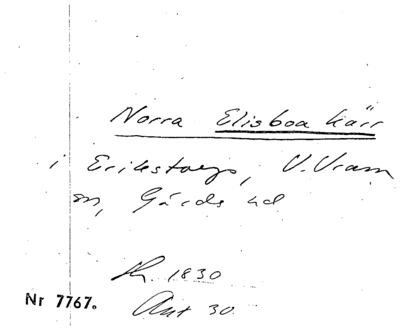 Norra Elisboa kärr
i Erikstorps, V. Vram
sn, Gärds hd
Kr. 1830
Akt 30.
Nr 7767.